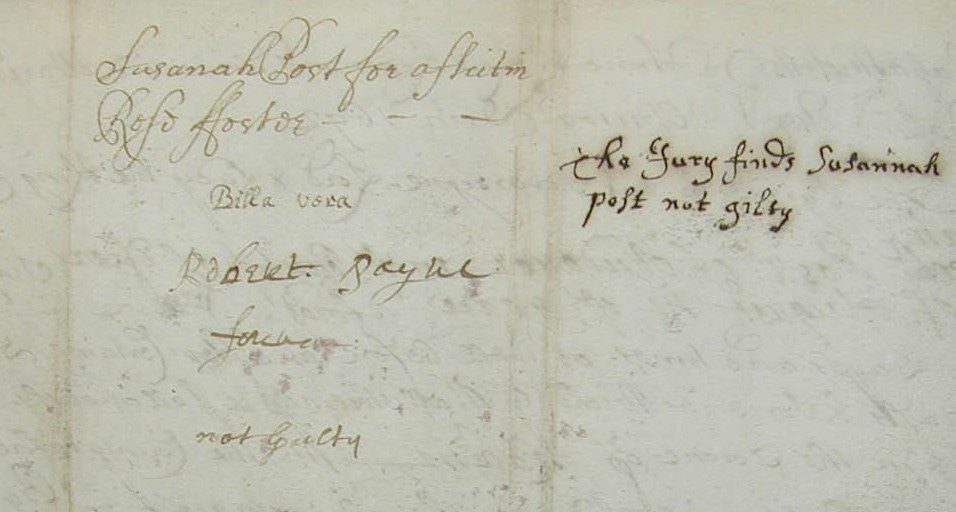 Susanah Post for aflictin
Rose ffoster
Billa vera
Robert. Payne
foreman:
not Guilty
The Jury finds Susannah
post not gilty